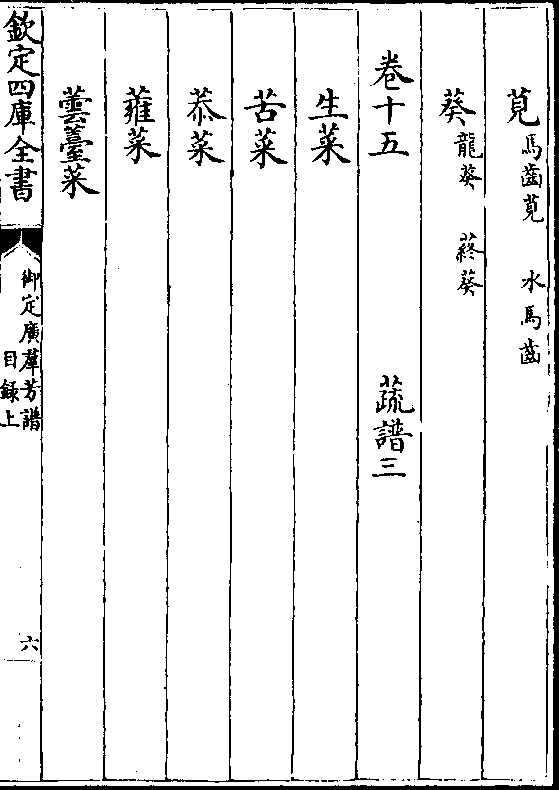 莧馬齒莧 水馬齒
葵龍葵 蔠葵
卷十五 蔬譜三
生菜
苦菜
菾菜
蕹菜
蕓薹菜
欽定四庫全書 御定廣羣芳譜目録上 六